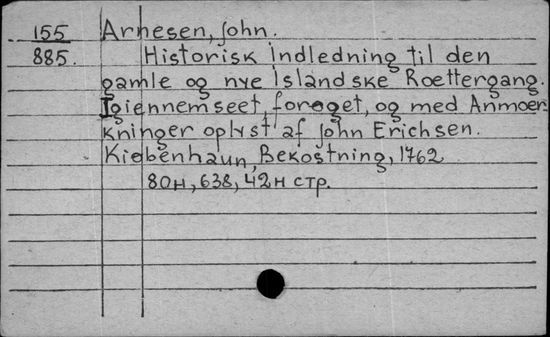 155 Arnesen, John.
885. Historisk Indledning til den
gamle og nye Islandske Roettergang.
Igiennemseet, foroget, og med Anmoer-
kninger oplyst af John Erichsen.
Kiøbenhaun, Bekostning, 1762
80н, 638, 42н стр.